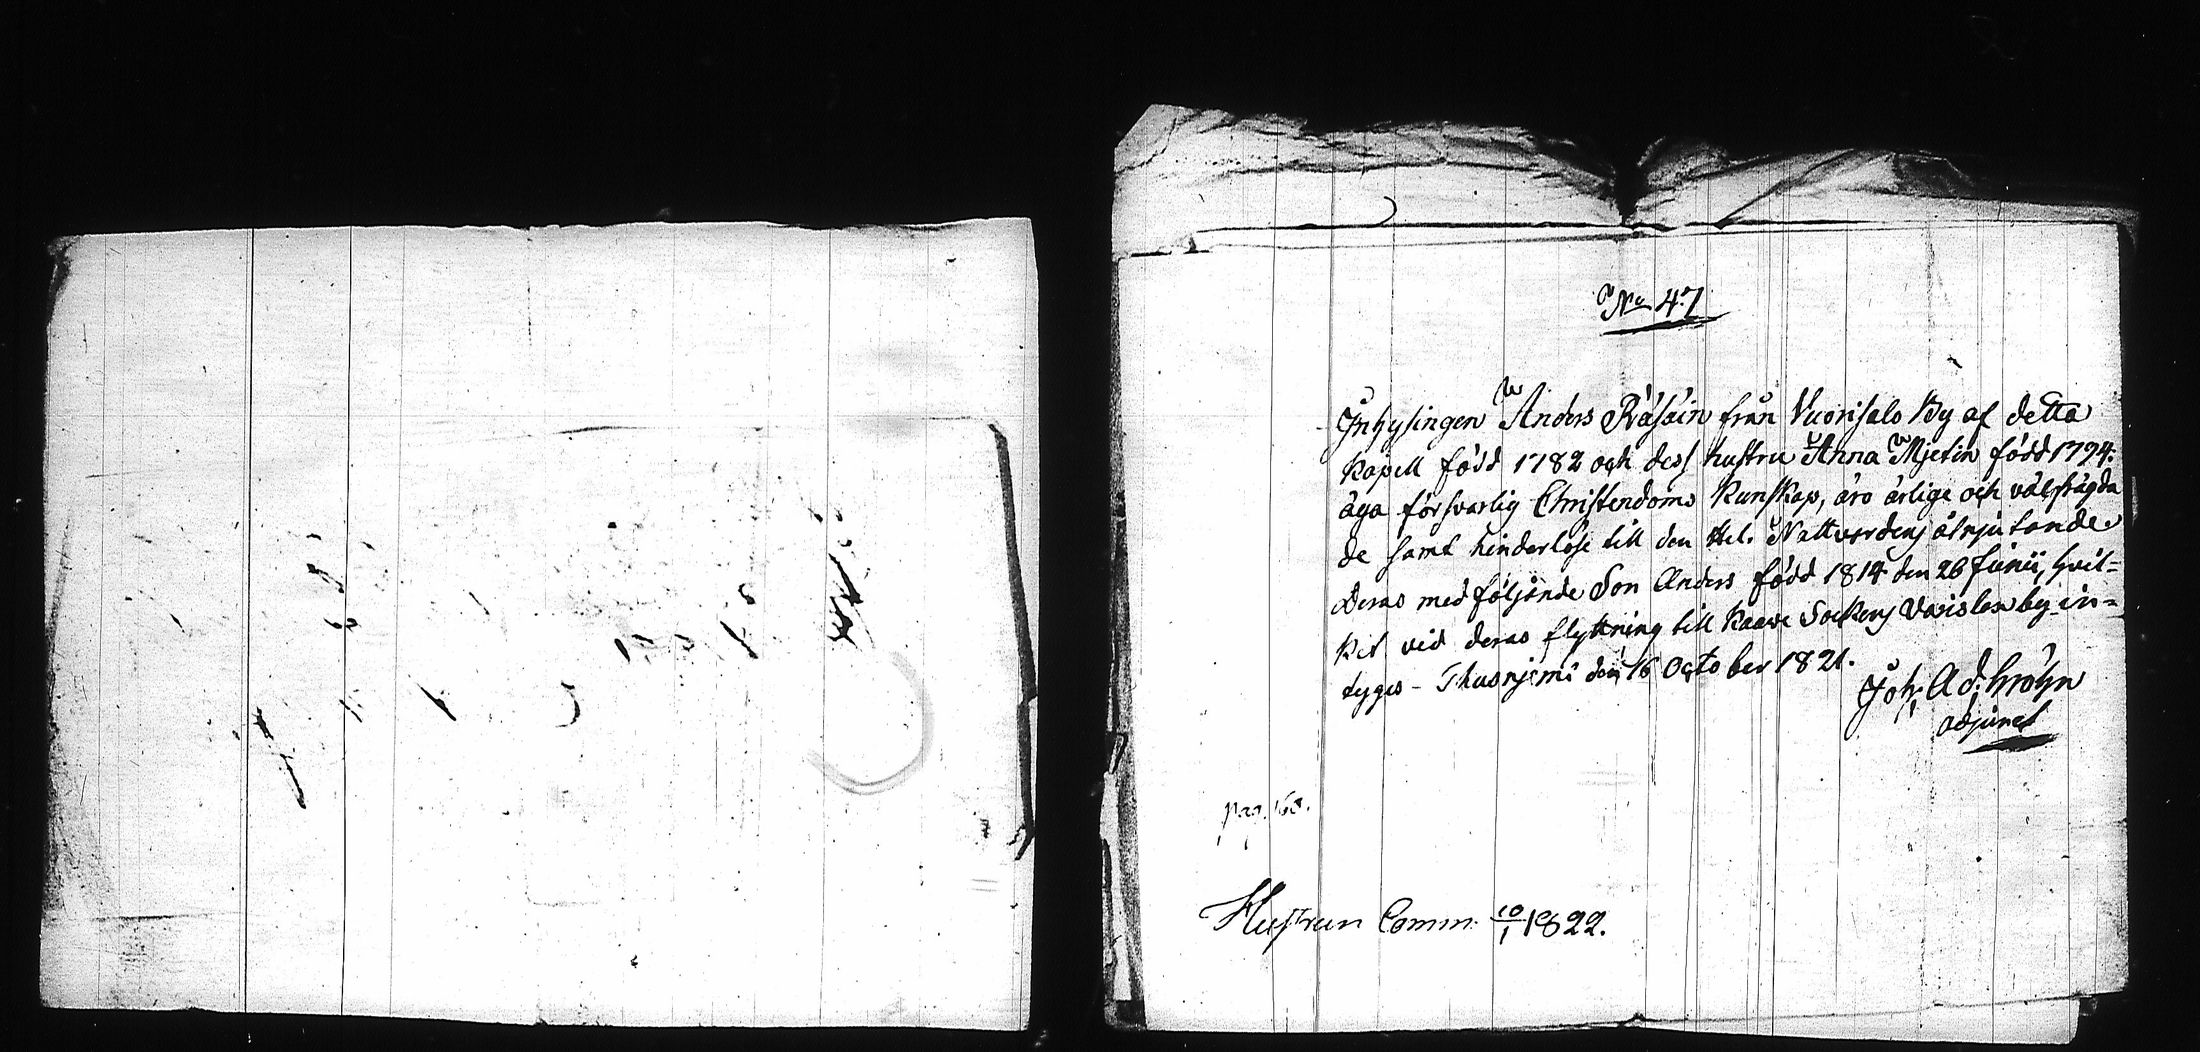 No 47
Inhysingen Anders Räsäin från Vuorisalo By af detta
Kapell född 1782 och dess hustru Anna Mjetin född 1794.
äga försvarlig Christendoms Kunskap, äro ärlige och välfrägda
de samt hinderlöse till den Hel. Nattvardens åtnjutande
Deras med följande Son Anders född 1814 den 26 Junii, hvil=
ket vid deras flyttning till Kaavi Sockens by in=
tygas - Thusnjemi den 16 October 1821.
Joh. Ad. Gröhn
Adjunct
pag. 168.
Hustrun Comm. 10/1 1822.